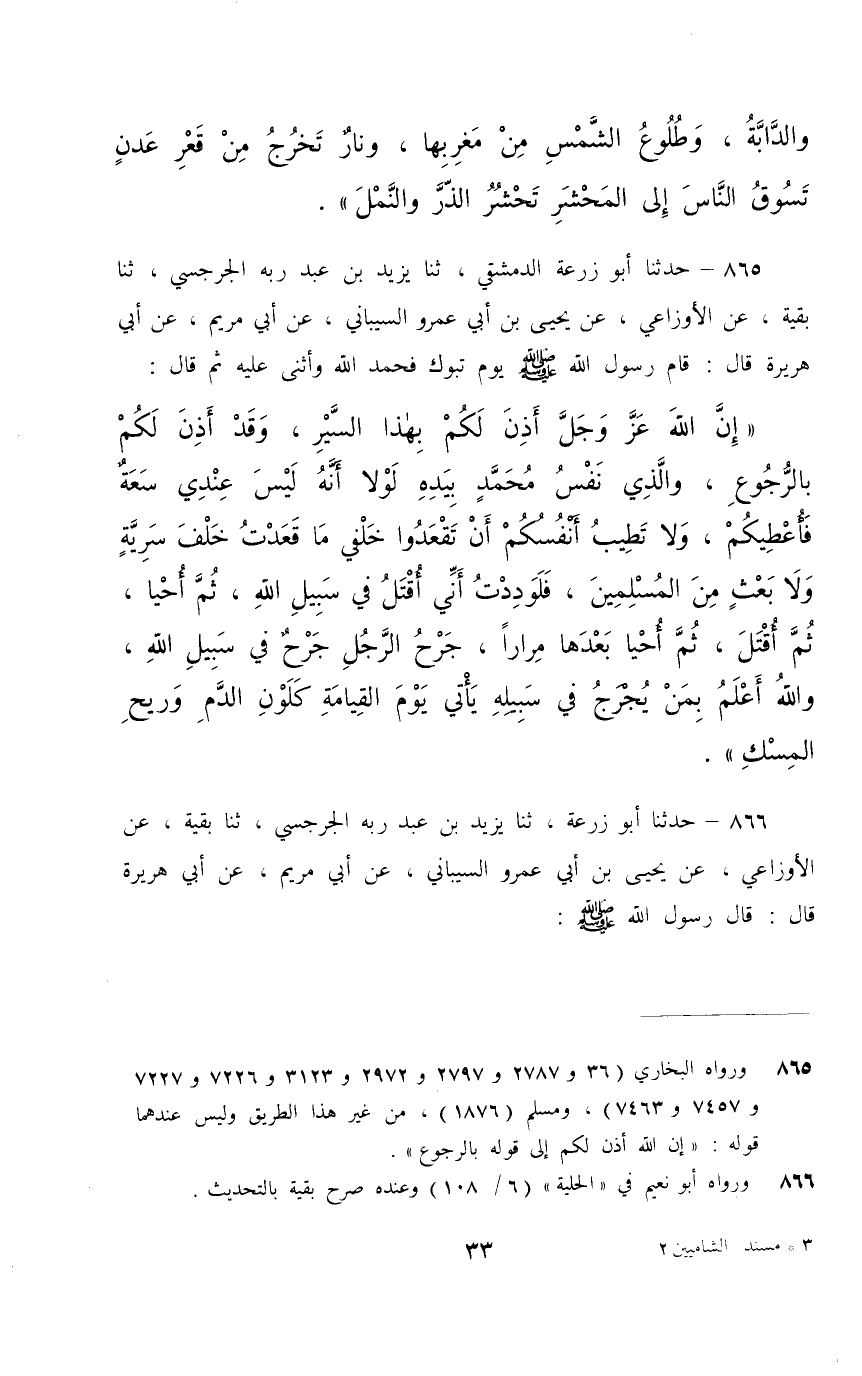 والدَّابَّةُ ، وَطُلُوعُ الشَّمْسِ مِنْ مَغرِبِها ، ونارٌ تَخرُجُ مِنْ قَعْرِ عَدنٍ
تَسُوقُ النَّاسَ إِلى المَحْشَرِ تَحْشُرُ الذّرَّ والنَّمْلَ » .
٨٦٥ – حدثنا أبو زرعة الدمشقي ، ثنا يزيد بن عبد ربه الجرجسي ، ثنا
بقية ، عن الأوزاعي ، عن يحيى بن أبي عمرو السيباني ، عن أبي مريم ، عن أبي
هريرة قال : قام رسول الله ﷺ يوم تبوك فحمد الله وأثنى عليه ثم قال :
« إِنَّ اللّهَ عَزَّ وَجَلَّ أَذِنَ لَكُمْ بِهٰذا السَّيْرِ ، وَقَدْ أَذِنَ لَكُمْ
بالرُّجُوعِ ، والَّذِي نَفْسُ مُحَمَّدٍ بِيَدِهِ لَوْلا أَنَّهُ لَيْسَ عِنْدِي سَعَةٌ
فَأُعْطِيكُمْ ، وَلا تَطِيبُ أَنْفُسُكُمْ أَنْ تَقْعَدُوا خَلْفي مَا قَعَدْتُ خَلْفَ سَرِيَّةٍ
وَلَا بَعْثٍ مِنَ المُسْلِمِينَ ، فَلَوَدِدْتُ أَنِّي أُقْتَلُ في سَبِيلِ اللّهِ ، ثُمَّ أُحْيا ،
ثُمَّ أُقْتَلَ ، ثُمَّ أُحْيا بَعْدَها مِراراً ، جَرْحُ الرَّجُلِ جَرْحٌ في سَبِيلِ اللّهِ ،
واللّهُ أَعْلَمُ بِمَنْ يُجْرَحُ في سَبِيلِهِ يَأْتي يَوْمَ القِيامَةِ كَلَوْنِ الدَّمِ وَريحِ
المِسْكِ » .
٨٦٦ – حدثنا أبو زرعة ، ثنا يزيد بن عبد ربه الجرجسي ، ثنا بقية ، عن
الأوزاعي ، عن يحيى بن أبي عمرو السيباني ، عن أبي مريم ، عن أبي هريرة
قال : قال رسول الله ﷺ :
٨٦٥ ورواه البخاري ( ٣٦ و ٢٧٨٧ و ٢٧٩٧ و ٢٩٧٢ و ٣١٢٣ و ٧٢٢٦ و ٧٢٢٧
و ٧٤٥٧ و ٧٤٦٣) ، ومسلم ( ١٨٧٦ ) ، من غير هذا الطريق وليس عندهما
قوله : « إن الله أذن لكم إلى قوله بالرجوع » .
٨٦٦ ورواه أبو نعيم في « الحلية » ( ٦ / ١٠٨ ) وعنده صرح بقية بالتحديث .
٣ * مسند الشاميين ٢
٣٣